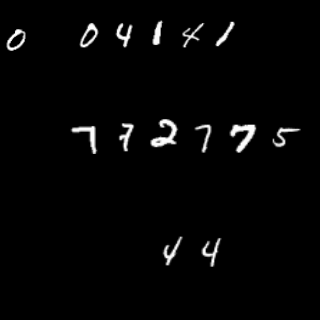 0 04141
772775
44